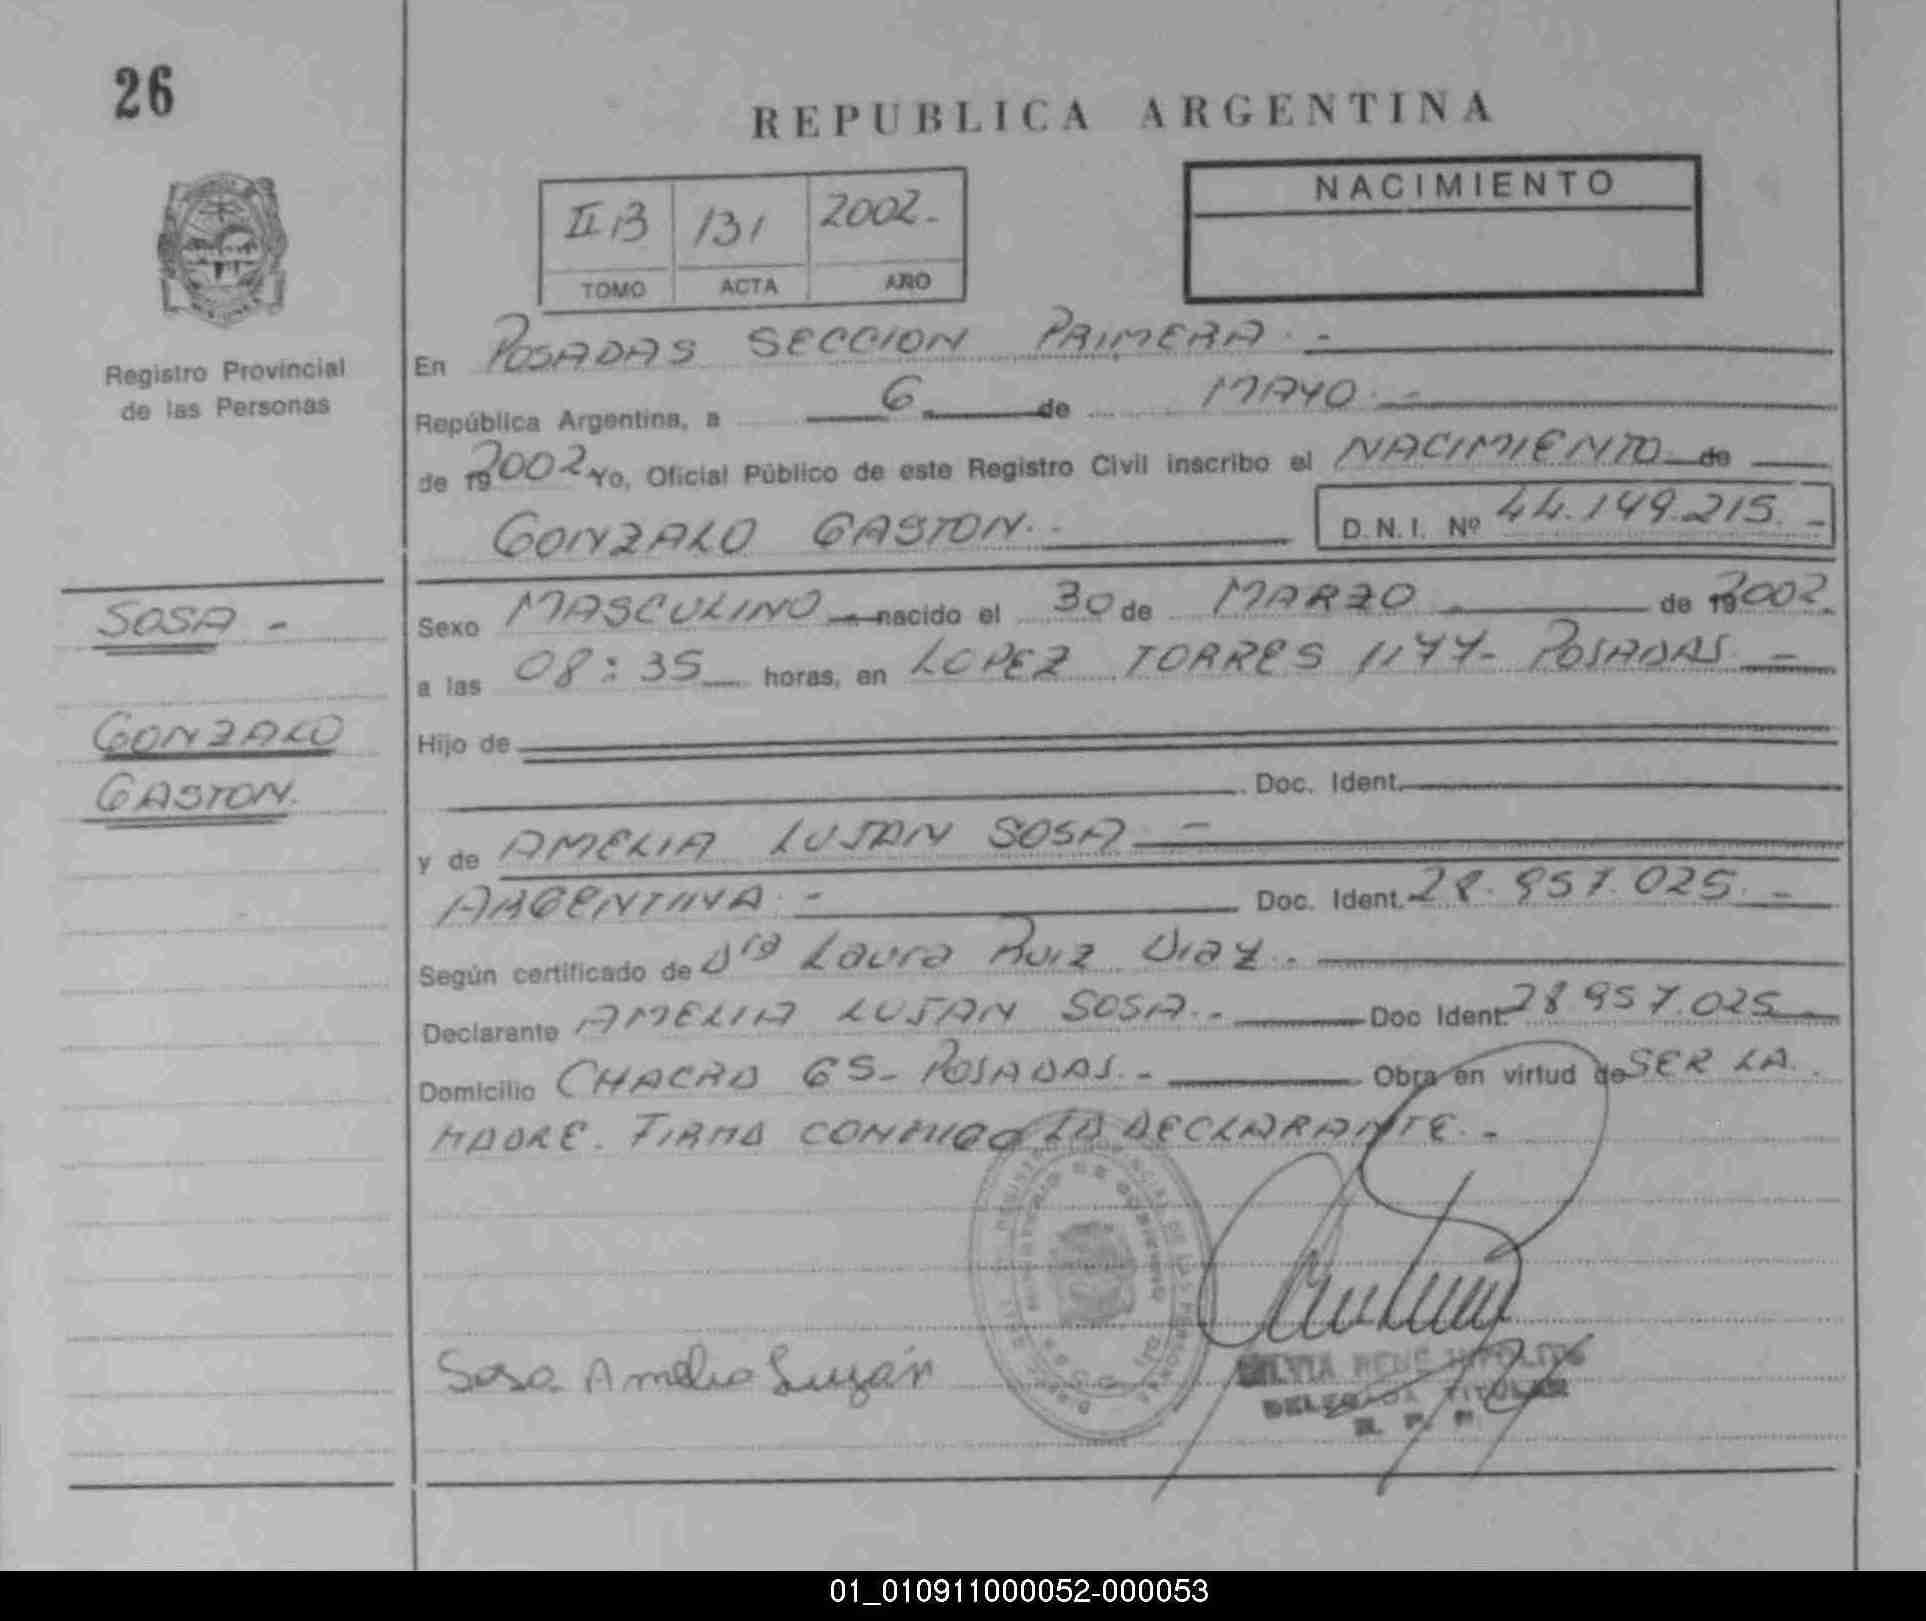 26
REPUBLICA ARGENTINA
II B 131 2002.-
TOMO ACTA AÑO
NACIMIENTO
Registro Provincial
de las Personas
En POSADAS SECCION PRIMERA.-
República Argentina, a 6 de MAYO.-
de 19 2002 Yo, Oficial Público de este Registro Civil inscribo el NACIMIENTO de
GONZALO GASTON.- D.N.I. Nº 44.149.215.-
SOSA -
GONZALO
GASTON.
Sexo MASCULINO nacido el 30 de MARZO - de 19 2002.
a las 08:35 horas, en LOPEZ TORRES 1177- POSADAS -
Hijo de
Doc. Ident.
y de AMELIA LUJAN SOSA.-
ARGENTINA.- Doc. Ident. 28.957.025.-
Según certificado de Dra Laura Ruiz Diaz.
Declarante AMELIA LUJAN SOSA.- Doc Ident. 28.957.025
Domicilio CHACRA 65- POSADAS.- Obra en virtud de SER LA
MADRE. FIRMA CONMIGO LA DECLARANTE.-
MINISTERIO DE GOBIERNO
Sosa Amelia Luján
SILVIA RENE HIPOLITO
DELEGADA TITULAR
R. P. P.
01_010911000052-000053